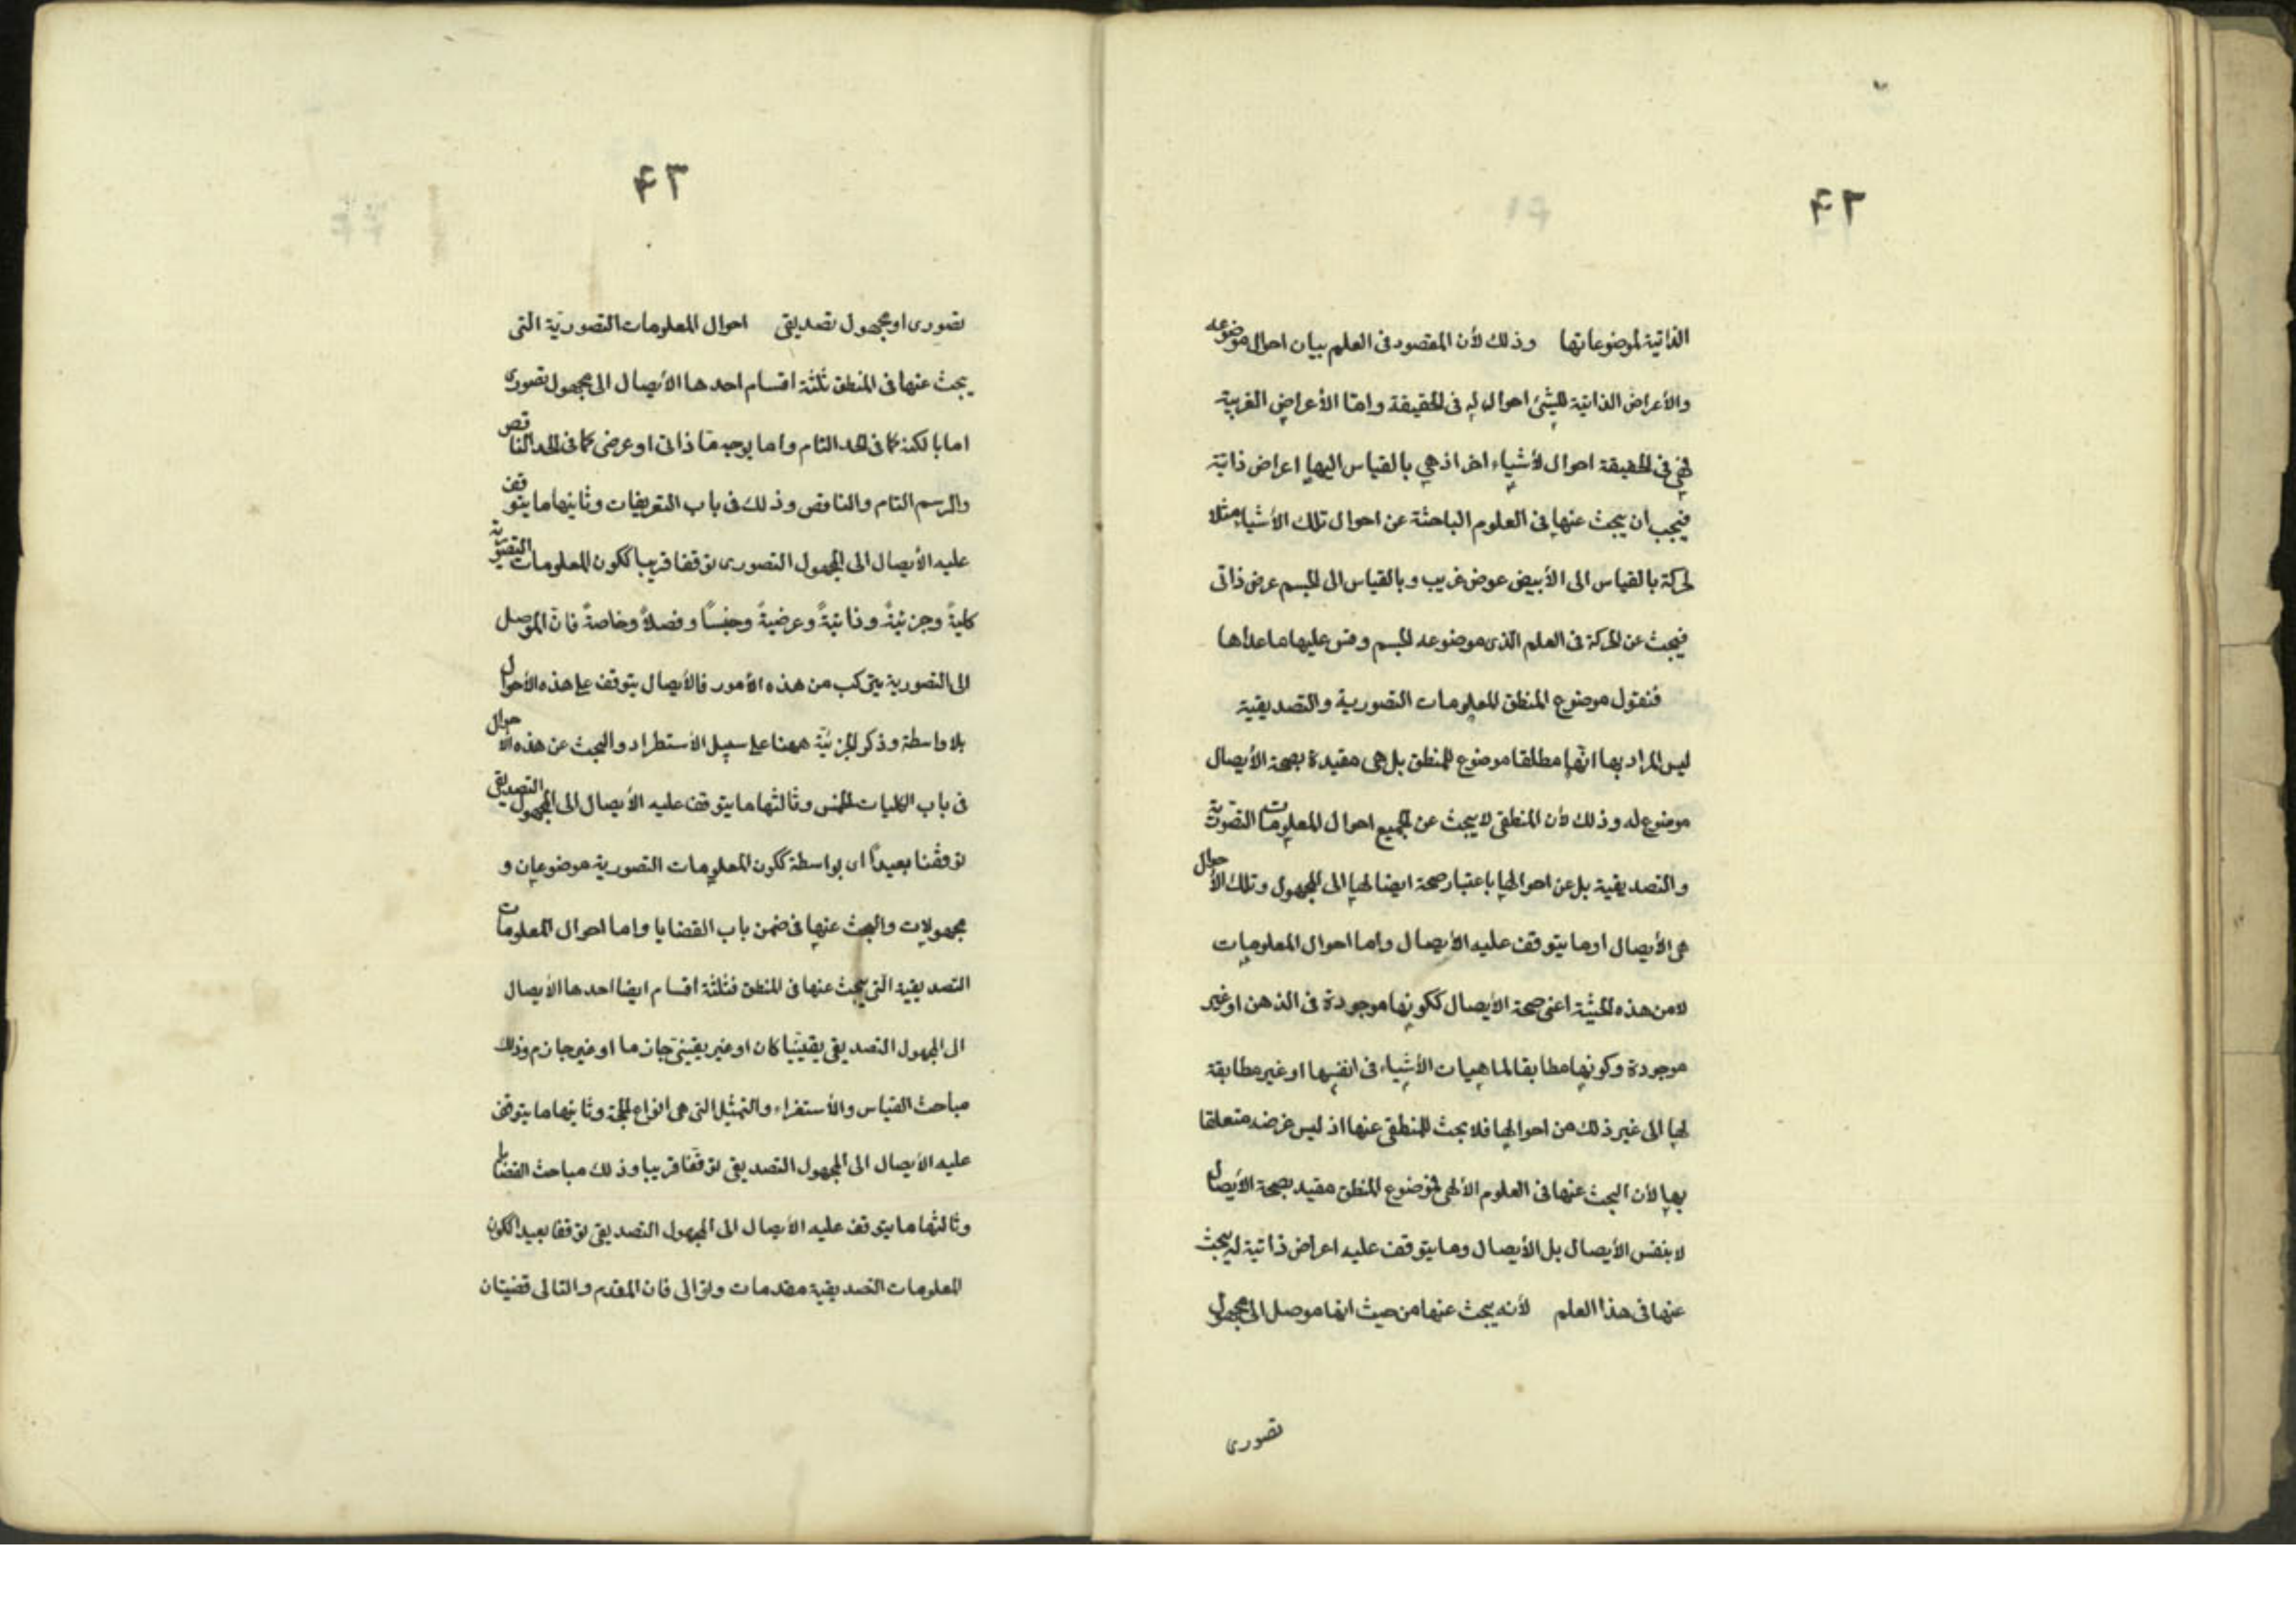 ۴۲
الذاتية لموضوعاتها وذلك لأن المقصود فى العلم بيان احوال موضوعه
والأعراض الذاتية للشئ احوال له فى الحقيقة واما الأعراض الغريبة
فهى فى الحقيقة احوال لأشياء اخر اذ هي بالقياس اليها اعراض ذاتية
فيجب ان يبحث عنها فى العلوم الباحثة عن احوال تلك الأشياء مثلا
لحركة بالقياس الى الأبيض عوض غريب وبالقياس الى الجسم عرض ذاتى
فيبحث عن الحركة فى العلم الذى موضوعه الجسم وقس عليها ماعداها
فنقول موضوع المنطق المعلومات التصورية والتصديقية
ليس المراد بها انها مطلقا موضوع المنطق بل هى مقيدة بصحة الأيصال
موضوع له وذلك لأن المنطقى لا يبحث عن الجميع احوال المعلومات التصورية
والتصديقية بل عن احوالها باعتبار صحة ايصالها الى المجهول وتلك الأحوال
هى الأيصال او ما يتوقف عليه الأيصال واما احوال المعلومات
لا من هذه الحيثية اعنى صحة الأيصال ككونها موجودة فى الذهن او غير
موجودة وكونها مطابقا لماهيات الأشياء فى انفسها او غير مطابقة
لها الى غير ذلك من احوالها فلا بحث للمنطقى عنها اذ ليس غرضه متعلقا
بها لأن البحث عنها فى العلوم الألهى فموضوع المنطق مقيد بصحة الأيصال
لا بنفس الأيصال بل الأيصال وما يتوقف عليه اعراض ذاتية له يبحث
عنها فى هذا العلم لأنه يبحث عنها من حيث انها موصل الى مجهول
تصورى
۴۳
تصورى او مجهول تصديقى احوال المعلومات التصورية التى
يبحث عنها فى المنطق ثلثة اقسام احدها الأيصال الى مجهول تصورى
اما بالكنه كما فى الحد التام واما بوجه ما ذاتى او عرضى كما فى الحد الناقص
والرسم التام والناقص وذلك فى باب التعريفات وثانيها ما يتوقف
عليه الأيصال الى المجهول التصورى توقفا قريبا ككون المعلومات التصورية
كليةً وجزئيةً وذاتيةً وعرضيةً وجنسًا وفصلاً وخاصةً فان الموصل
الى التصورية يتركب من هذه الأمور فالأيصال يتوقف على هذه الأحوال
بلا واسطة وذكر الجزئية ههنا على سبيل الأستطراد والبحث عن هذه الأحوال
فى باب الكليات الخمس وثالثها ما يتوقف عليه الأيصال الى المجهول التصديقى
توقفنا بعيداً اى بواسطة ككون المعلومات التصورية موضوعات و
مجهولات والبحث عنها فى ضمن باب القضايا واما احوال المعلومات
التصديقية التى يبحث عنها فى المنطق فثلثة اقسام ايضا احدها الأيصال
الى المجهول التصديقى يقينيا كان او غير يقينى جازما او غير جازم وذلك
مباحث القياس والأستقراء والتمثيل التى هى انواع الحجة وثانيها ما يتوقف
عليه الأيصال الى المجهول التصديقى توقفا قريبا وذلك مباحث القضايا
وثالثها ما يتوقف عليه الأيصال الى المجهول التصديقى توقفا بعيدا ككون
المعلومات التصديقية مقدمات وتوالى فان المقدم والتالى قضيتان